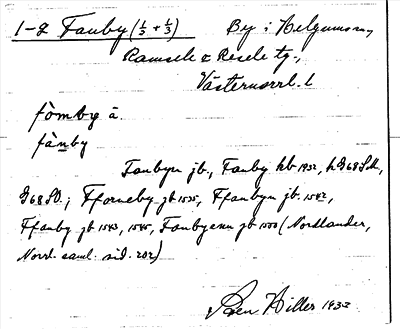 1-2 Fanby (1/3 + 1/3) By i Helgums sn,
Ramsele & Resele tg.,
Västernorrl. l
fòmbȳ ā.
fànby
Fanbyn jb., Fanby kb 1932, hD 68 SM,
D 68 SO.; Fforneby jb 1535, Ffanbyn jb. 1542,
Ffanby jb 1543, 1545, Fanbyenn jb 1550 (Nordlander,
Norrl. saml. sid. 202)
Hiller 1933